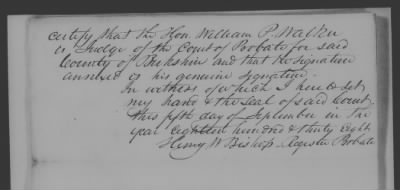 certify that the Hon. William P. Walker
is Judge of the Court of Probate for said
County of Berkshire and that the signature
annexed is his genuine signature.
In witness of which I here to set
my hand & the Seal of said Court
this fifth day of September in the
year eighteen hundred & thirty eight
Henry W Bishop Register Probate